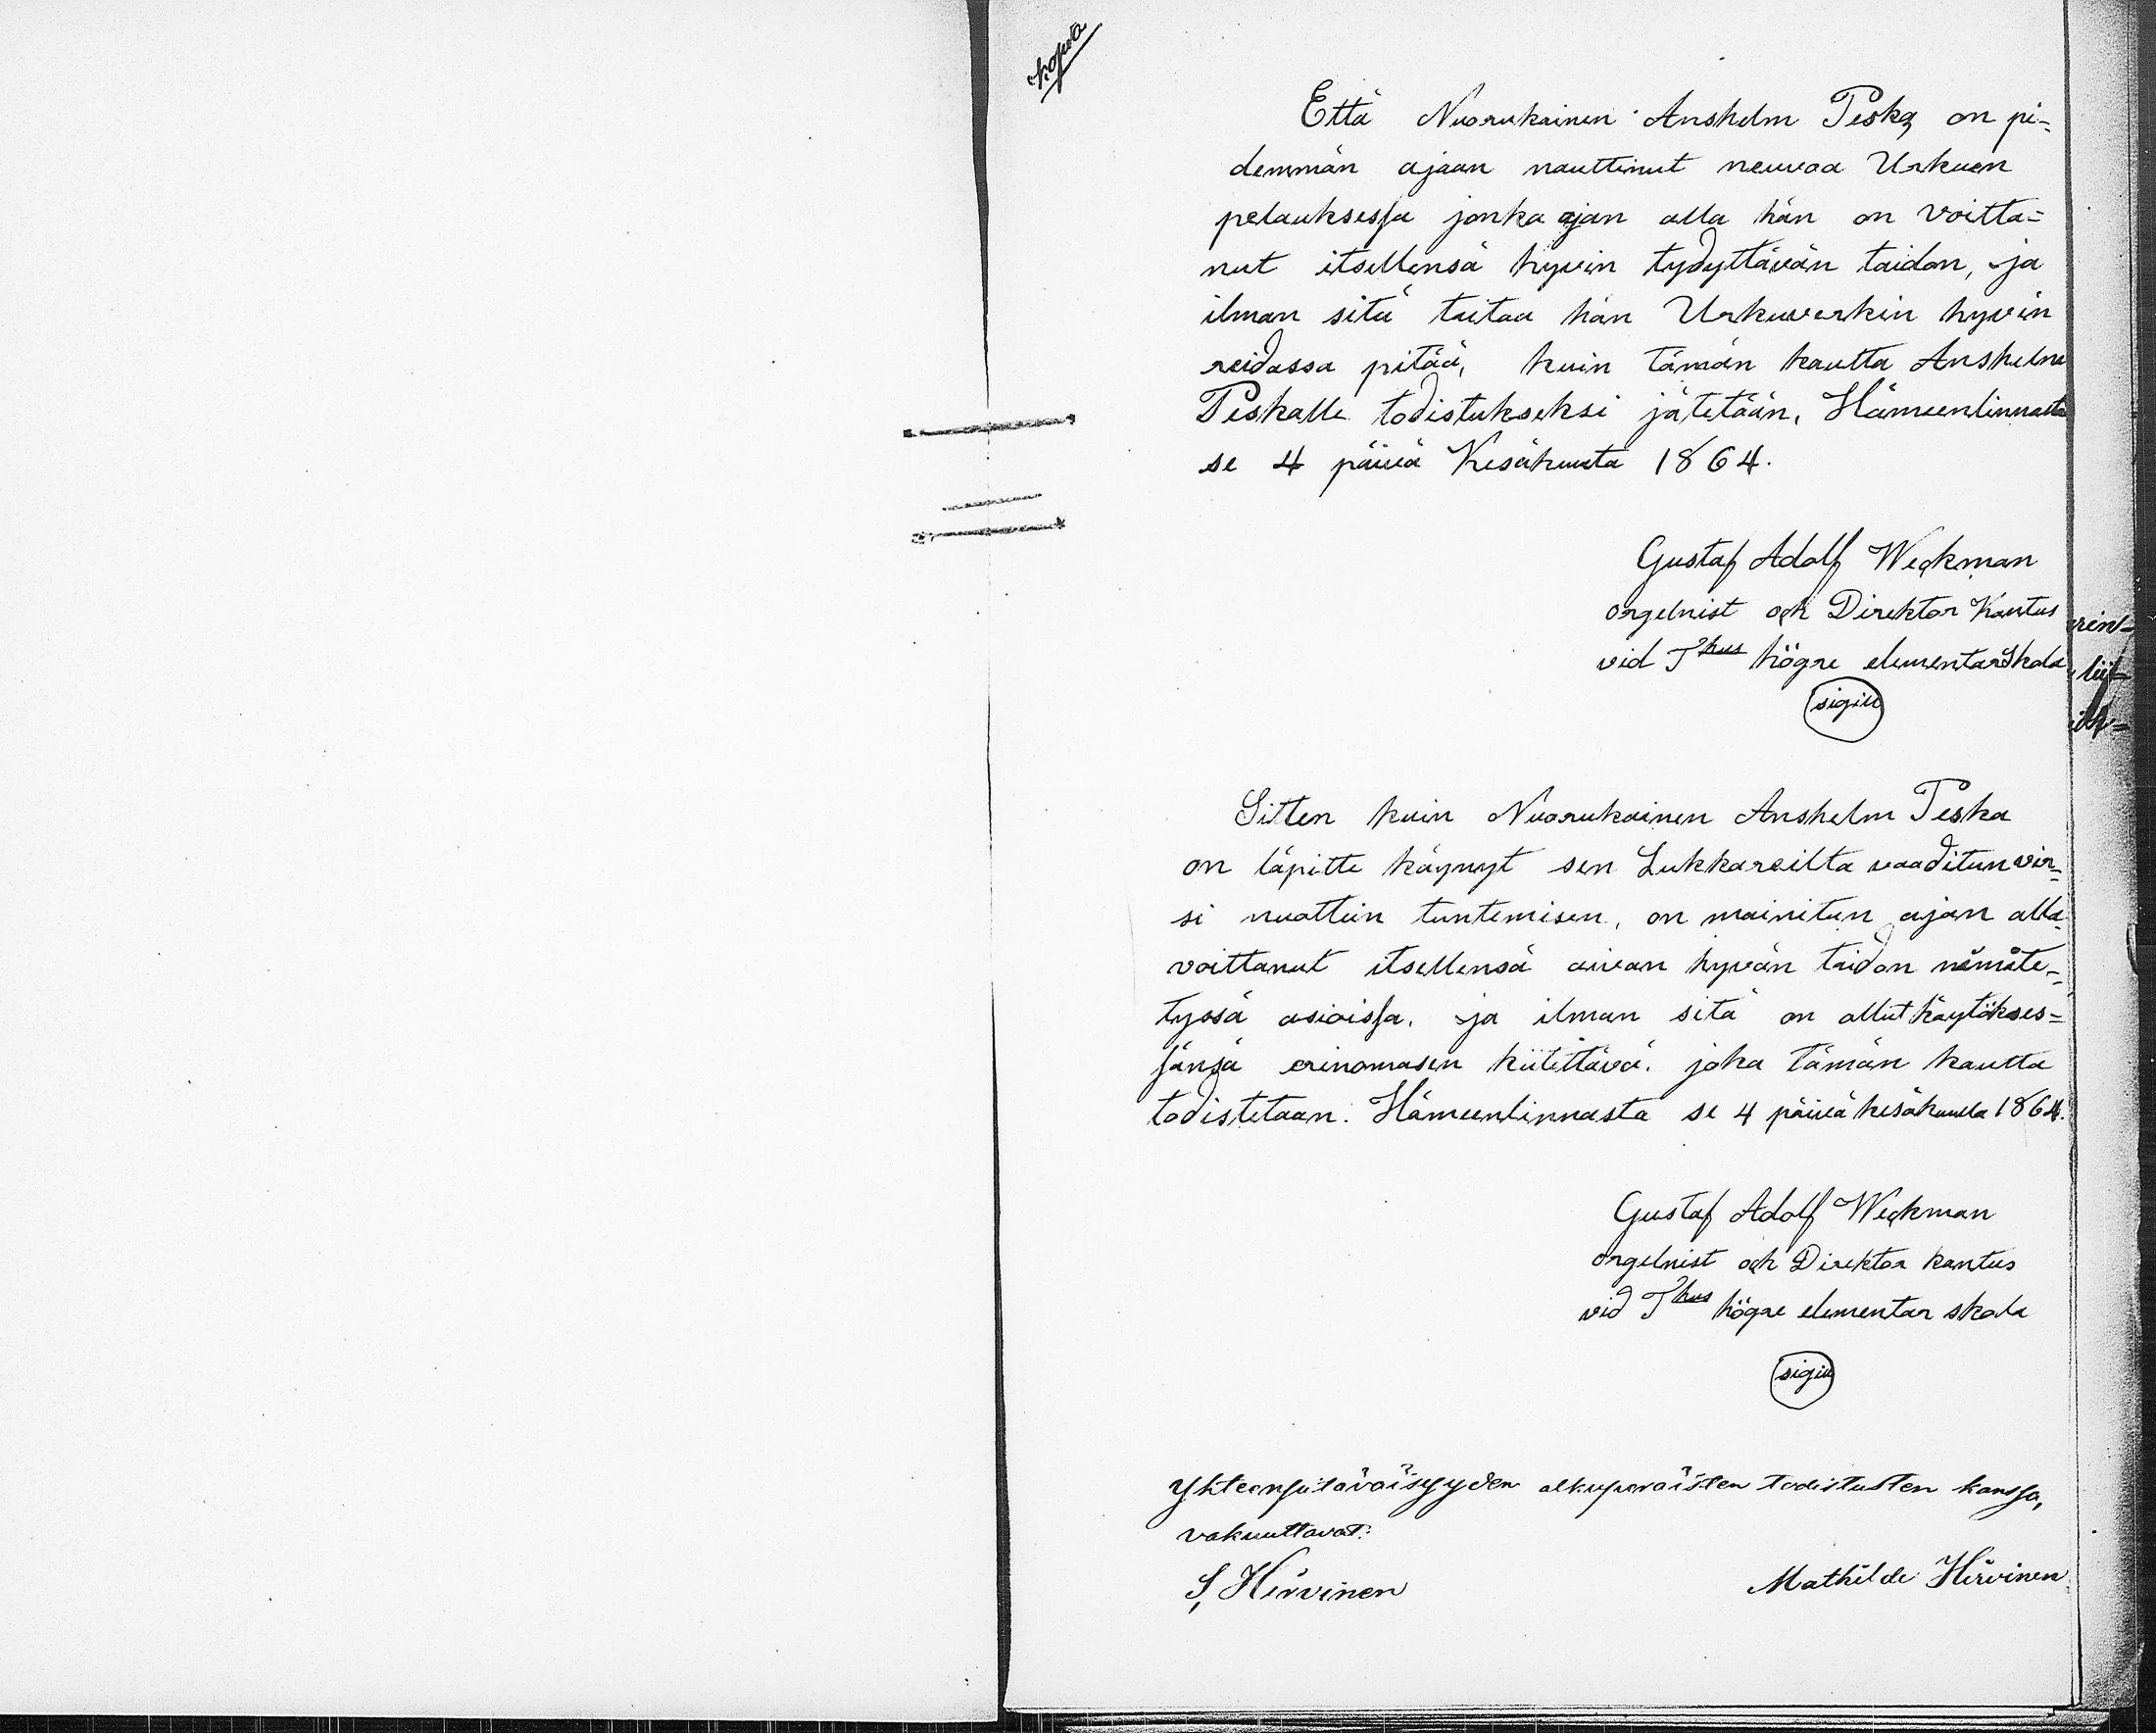 Kopia
Että Nuorukainen Anshelm Peska on pi=
demmän ajaan nauttinut neuvoa Urkuen
pelauksessa jonka ajan alla hän on voitta=
nut itsellensä hyvin tydyttävän taidon, ja
ilman sitä taitaa hän Urkuverkin hyvin
reidassa pitää, kuin tämän kautta Anshelm
Peskalle todistukseksi jätetään, Hämeenlinnasta
se 4 päivä Kesäkuuta 1864.
Gustaf Adolf Weckman
orgelnist och Direktor Kantus
vid Thus högre elementarskola
sigill
rin=
liit=
Sitten kuin Nuorukainen Anshelm Peska
on läpitte käynyt sen Lukkareilta vaaditun vir=
si nuottein tuntemisen, on mainitun ajan alla
voittanut itsellensä aivan hyvän taidon nämäte=
tyssä asioissa, ja ilman sitä on ollut käytökses=
sänsä erinomasen kiitettävä, joka tämän kautta
todistetaan. Hämeenlinnasta se 4 päivä kesäkuulla 1864.
Gustaf Adolf Weckman
orgelnist och Direktor kantus
vid Thus högre elementar skola
sigill
Yhteenpitäväisyyden alkuperäisten todistusten kanssa,
vakuuttavat:
S. Hirvinen Mathilde Hirvinen